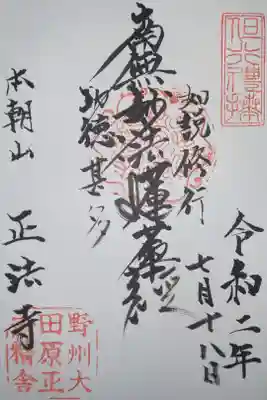 但行禮拝
令和二年
七月十八日
如説修行
南無妙法蓮華経
功徳甚多
本朝山 正法寺
野州大
田原正
法精舎